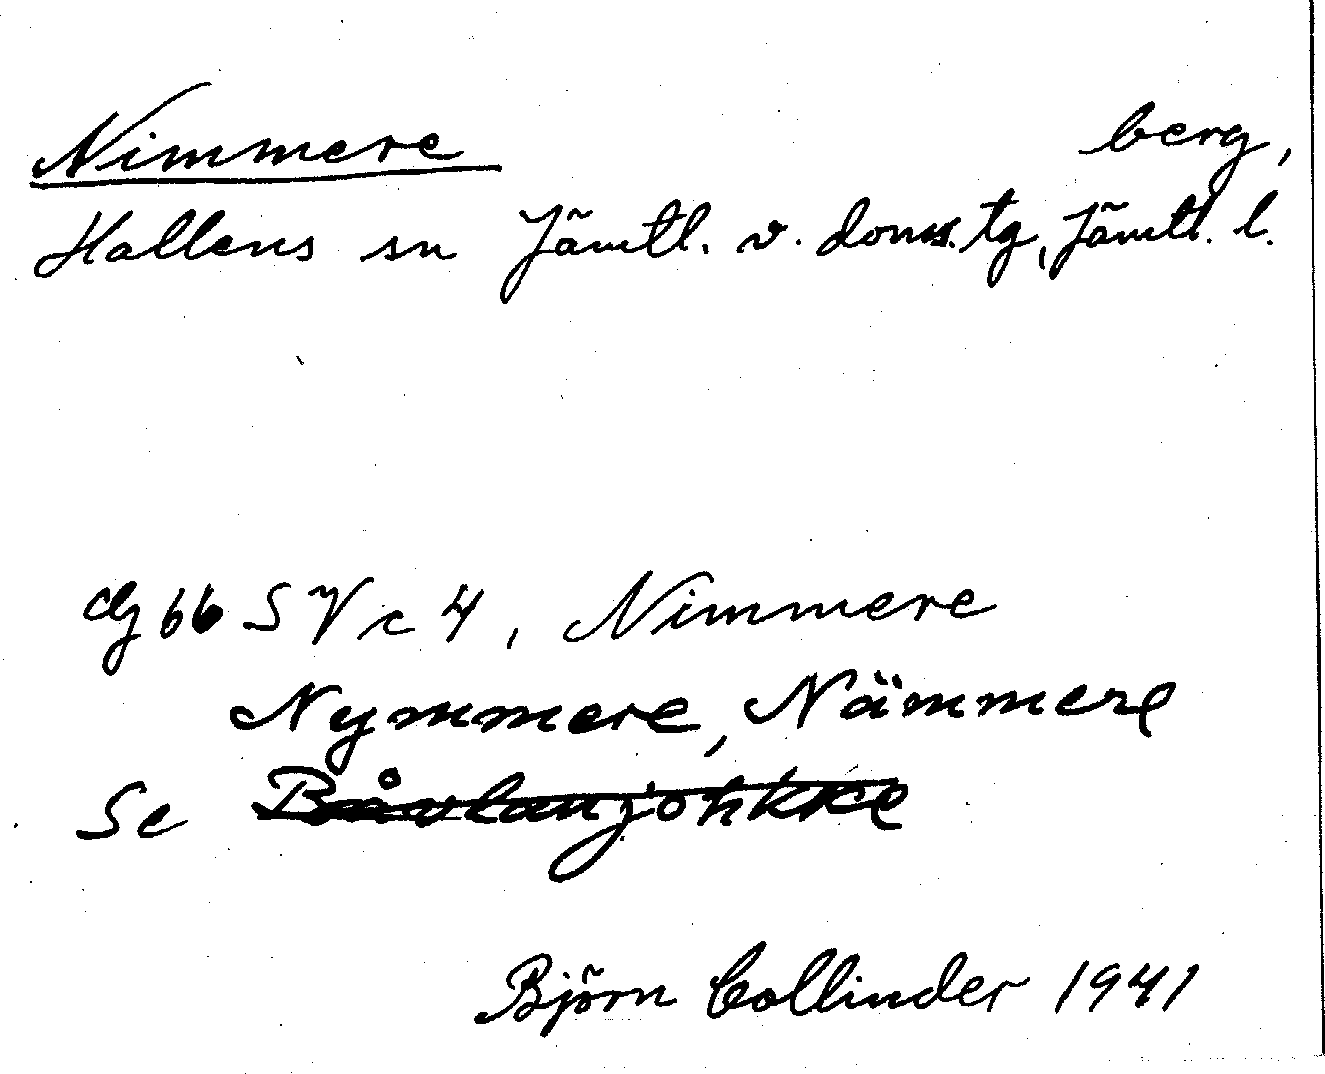 Nimmere berg,
Hallens sn Jämtl. v. doms. tg, Jämtl. l.
dg 66 SV c 4, Nimmere
Nymmere, Nämmere
Se
Björn Collinder 1941